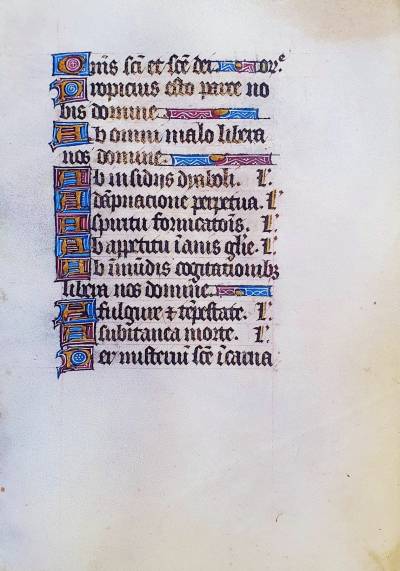 Om̄is sc̄i et sc̄e dei or.ͤ
Propicius esto parce no
bis domine.
Ab omni malo libera
nos domine.
Ab insidijs dyaboli. L'.
A dāpnacione perpetua. L'
A spiritu fornicatōis. L'.
Ab appetitu īanis gl̄ie. L'.
Ab īmūdis cogitationibꝫ
libera nos domine.
A fulgure ⁊ tēpestate. L'.
A subitanea morte. L'.
Per misteriū sc̄e īcarna